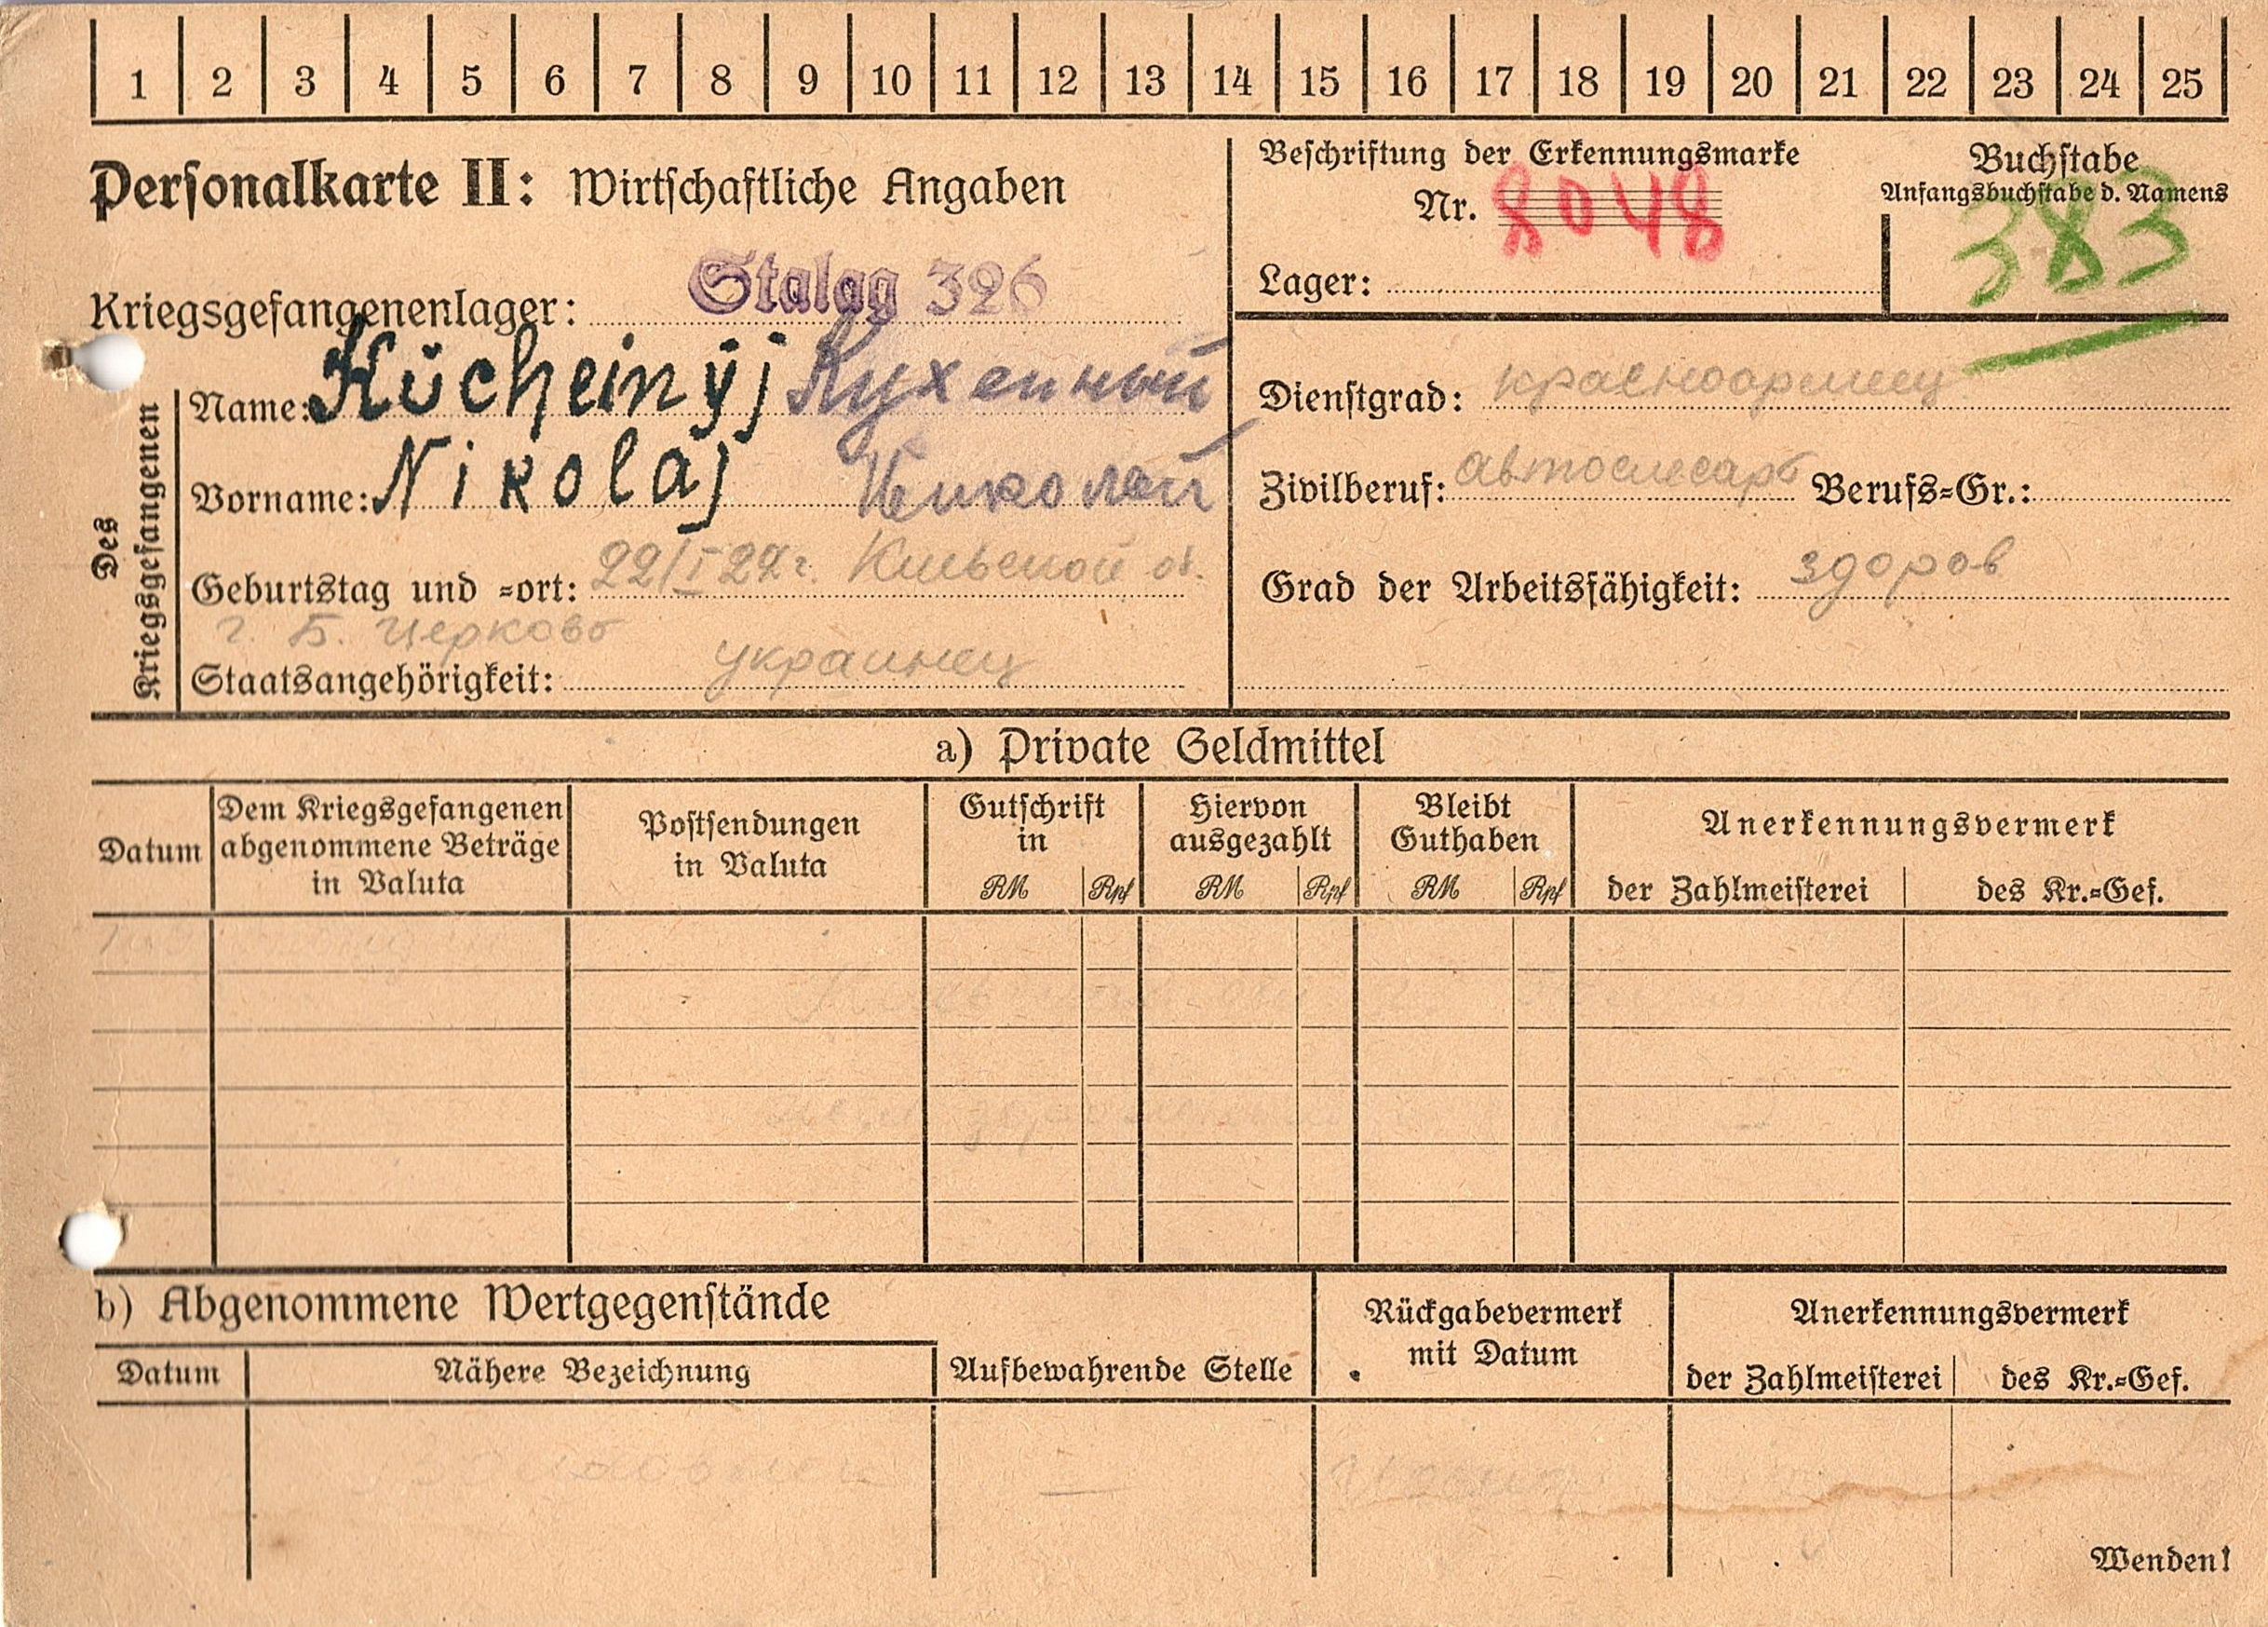 1 2 3 4 5 6 7 8 9 10 11 12 13 14 15 16 17 18 19 20 21 22 23 24 25
Personalkarte II: Wirtschaftliche Angaben
Kriegsgefangenenlager: Stalag 326
Des Kriegsgefangenen
Name: Kŭcheinyj Кухенный
Vorname: Nikolaj Николай
Geburtstag und =ort: 22/I 22г. Киевской об.
г. Б. Церковь
Staatsangehörigkeit: украинец
Beschriftung der Erkennungsmarke
Nr. 8048
Lager:
Buchstabe
Anfangsbuchstabe d. Namens
383
Dienstgrad: красноармеец
Zivilberuf: автослесарь Berufs=Gr.:
Grad der Arbeitsfähigkeit: здоров
a) Private Geldmittel
Datum
Dem Kriegsgefangenen
abgenommene Beträge
in Valuta
Postsendungen
in Valuta
Gutschrift
in
RM Rpf
Hiervon
ausgezahlt
RM Rpf
Bleibt
Guthaben
RM Rpf
Anerkennungsvermerk
der Zahlmeisterei des Kr.=Gef.
b) Abgenommene Wertgegenstände
Datum
Nähere Bezeichnung
Aufbewahrende Stelle
Rückgabevermerk
mit Datum
Anerkennungsvermerk
der Zahlmeisterei des Kr.=Gef.
Wenden!